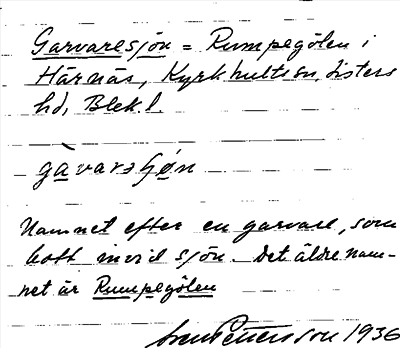 Garvaresjön = Rumpegölen i
Härnäs, Kyrkhults sn, Listers
hd, Blekl.
gàvarshøn
Namnet efter en garvare, som
bott invid sjön. Det äldre nam-
net är Rumpegölen
Pettersson 1936